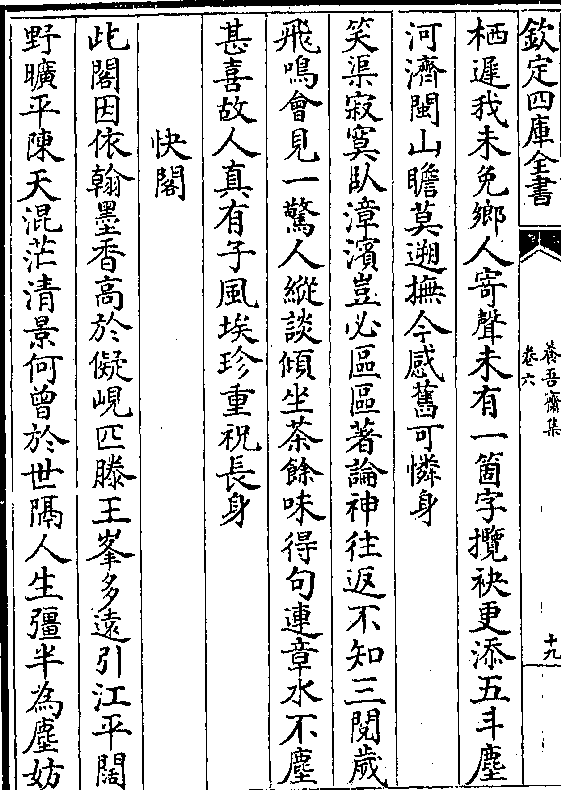 欽定四庫全書
養吾齋集
卷六
十九
栖遲我未免鄉人寄聲未有一箇字攬袂更添五斗塵
河濟閩山瞻莫遡撫今感舊可憐身
笑渠寂寞臥漳濱豈必區區著論神往返不知三閱歲
飛鳴會見一驚人縱談傾坐茶餘味得句連章水不塵
甚喜故人真有子風埃珍重祝長身
快閣
此閣因依翰墨香高於儗峴匹滕王峯多遠引江平闊
野曠平陳天混茫清景何曾於世隔人生彊半為塵妨